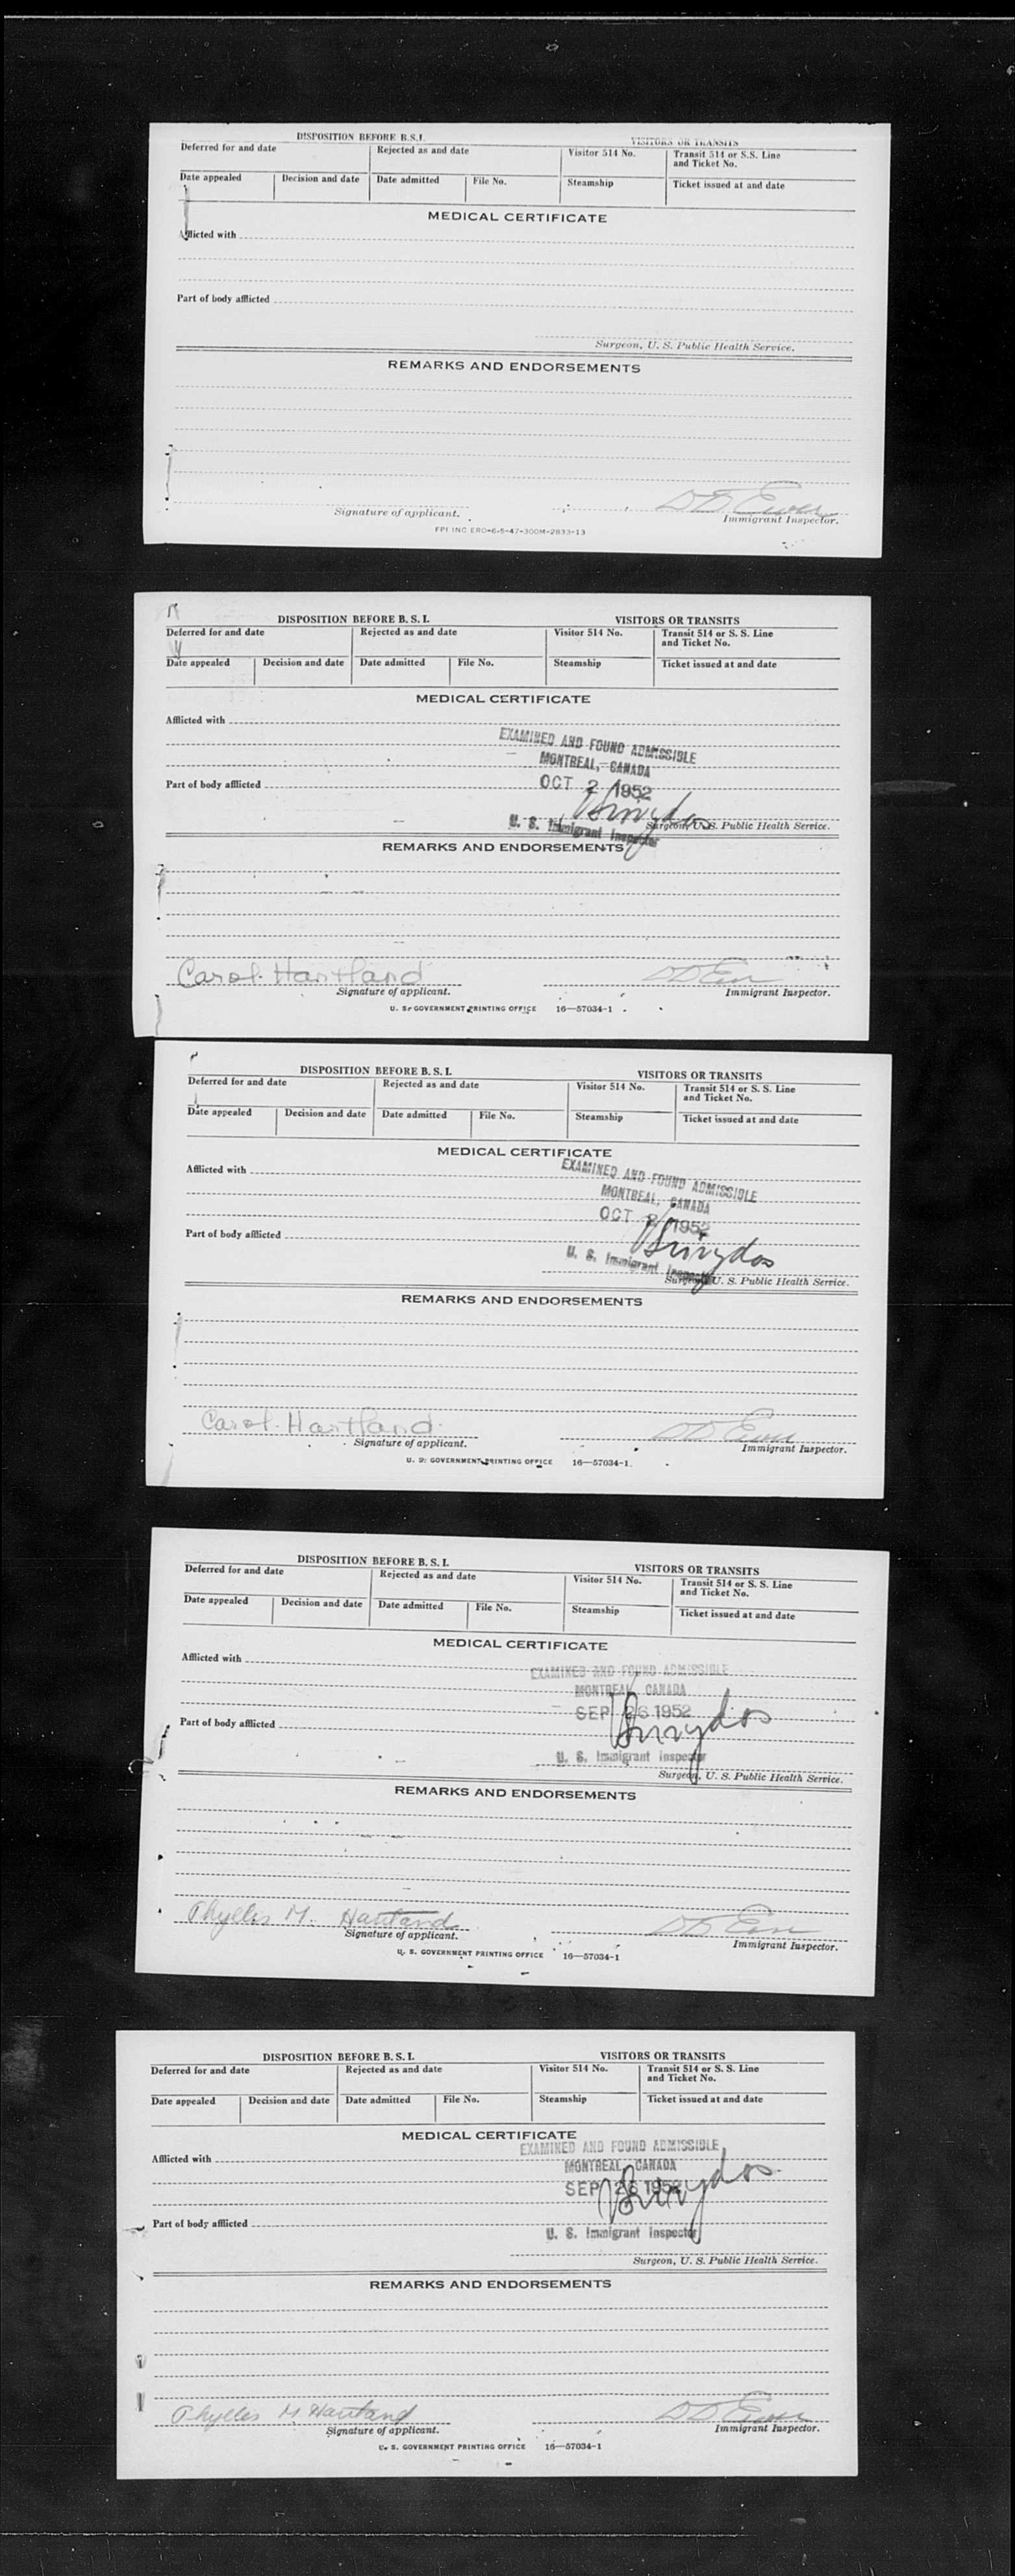 DISPOSITION BEFORE B.S.I. VISITORS OR TRANSITS
Deferred for and date Rejected as and date Visitor 514 No. Transit 514 or S.S. Line
and Ticket No.
Date appealed Decision and date Date admitted File No. Steamship Ticket issued at and date
MEDICAL CERTIFICATE
Afflicted with
Part of body afflicted
Surgeon, U. S. Public Health Service.
REMARKS AND ENDORSEMENTS
Signature of applicant. Immigrant Inspector.
FPI INC ERO-6-5-47-300M-2833-13
DISPOSITION BEFORE B. S. I. VISITORS OR TRANSITS
Deferred for and date Rejected as and date Visitor 514 No. Transit 514 or S. S. Line
and Ticket No.
Date appealed Decision and date Date admitted File No. Steamship Ticket issued at and date
MEDICAL CERTIFICATE
Afflicted with
EXAMINED AND FOUND ADMISSIBLE
MONTREAL, CANADA
Part of body afflicted OCT 2 1952
U. S. Immigrant Inspector Surgeon, U. S. Public Health Service.
REMARKS AND ENDORSEMENTS
Carol Hartland
Signature of applicant. Immigrant Inspector.
U. S. GOVERNMENT PRINTING OFFICE 16—57034-1
DISPOSITION BEFORE B. S. I. VISITORS OR TRANSITS
Deferred for and date Rejected as and date Visitor 514 No. Transit 514 or S. S. Line
and Ticket No.
Date appealed Decision and date Date admitted File No. Steamship Ticket issued at and date
MEDICAL CERTIFICATE
Afflicted with EXAMINED AND FOUND ADMISSIBLE
MONTREAL, CANADA
OCT 2 1952
Part of body afflicted
U. S. Immigrant Inspector
Surgeon, U. S. Public Health Service.
REMARKS AND ENDORSEMENTS
Carol Hartland
Signature of applicant. Immigrant Inspector.
U. S. GOVERNMENT PRINTING OFFICE 16—57034-1
DISPOSITION BEFORE B. S. I. VISITORS OR TRANSITS
Deferred for and date Rejected as and date Visitor 514 No. Transit 514 or S. S. Line
and Ticket No.
Date appealed Decision and date Date admitted File No. Steamship Ticket issued at and date
MEDICAL CERTIFICATE
Afflicted with
EXAMINED AND FOUND ADMISSIBLE
MONTREAL, CANADA
SEP 26 1952
Part of body afflicted
U. S. Immigrant Inspector
Surgeon, U. S. Public Health Service.
REMARKS AND ENDORSEMENTS
Phyllis M. Hartland
Signature of applicant. Immigrant Inspector.
U. S. GOVERNMENT PRINTING OFFICE 16—57034-1
DISPOSITION BEFORE B. S. I. VISITORS OR TRANSITS
Deferred for and date Rejected as and date Visitor 514 No. Transit 514 or S. S. Line
and Ticket No.
Date appealed Decision and date Date admitted File No. Steamship Ticket issued at and date
MEDICAL CERTIFICATE
EXAMINED AND FOUND ADMISSIBLE
Afflicted with
MONTREAL, CANADA
SEP 26 1952
Part of body afflicted
U. S. Immigrant Inspector
Surgeon, U. S. Public Health Service.
REMARKS AND ENDORSEMENTS
Phyllis M. Hartland
Signature of applicant. Immigrant Inspector.
U. S. GOVERNMENT PRINTING OFFICE 16—57034-1